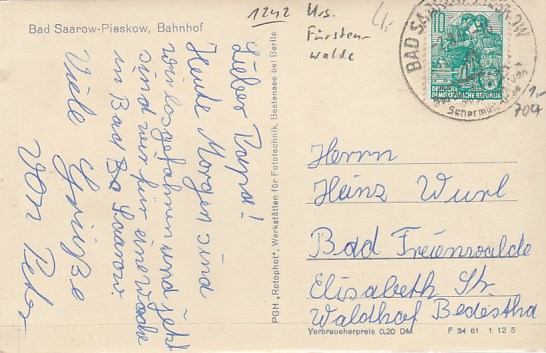 Bad Saarow-Pieskow, Bahnhof
1242
Krs.
Fürsten-
walde
Lieber Papa!
Heute Morgen sind
wir losgefahren und jetzt
sind wir für eine Woche
in Bad Saarow.
Viele Grüße
von Peter
PGH „Rotophot", Werkstätten für Fototechnik, Bestensee bei Berlin
BAD SAAROW-PIESKOW
10
DEUTSCHE
DEMOKRATISCHE REPUBLIK
Scharmützelsee
1,-
704
Herrn
Heinz Wurl
Bad Freienwalde
Elisabeth Str.
Waldhof
Verbraucherpreis 0,20 DM F 34 61 1 12 5